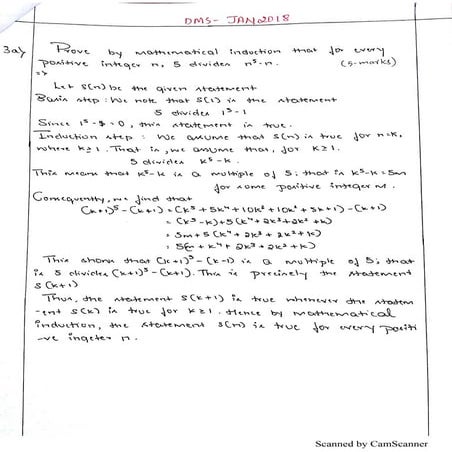 DMS- JAN2018
3a) Prove by mathematical induction that for every
positive integer n, 5 divides n⁵-n. (5-marks)
=>
Let S(n) be the given statement
Basis step: We note that S(1) is the statement
5 divides 1⁵-1
Since 1⁵-1=0, this statement is true.
Induction step: We assume that S(n) is true for n=k,
where k≥1. That is, we assume that, for k≥1.
5 divides k⁵-k.
This means that k⁵-k is a multiple of 5; that is k⁵-k=5m
for some positive integer m.
Consequently, we find that
(k+1)⁵-(k+1)=(k⁵+5k⁴+10k³+10k²+5k+1)-(k+1)
= (k⁵-k)+5(k⁴+2k³+2k²+k)
= 5m+5(k⁴+2k³+2k²+k)
= 5(m+k⁴+2k³+2k²+k)
This shows that (k+1)⁵-(k-1) is a multiple of 5; that
is 5 divides (k+1)⁵-(k+1). This is precisely the statement
S(k+1)
Thus, the statement S(k+1) is true whenever the statem
-ent S(k) is true for k≥1. Hence by mathematical
induction, the statement S(n) is true for every positi
-ve ingeter n.
Scanned by CamScanner